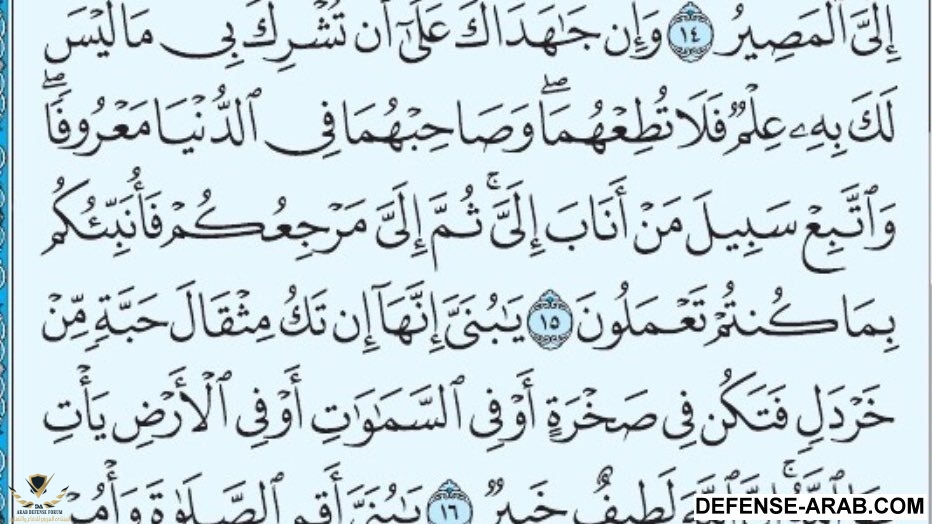 إِلَىَّ ٱلْمَصِيرُ ١٤ وَإِن جَـٰهَدَاكَ عَلَىٰٓ أَن تُشْرِكَ بِى مَا لَيْسَ
لَكَ بِهِۦ عِلْمٌ فَلَا تُطِعْهُمَا ۖ وَصَاحِبْهُمَا فِى ٱلدُّنْيَا مَعْرُوفًا ۖ
وَٱتَّبِعْ سَبِيلَ مَنْ أَنَابَ إِلَىَّ ۚ ثُمَّ إِلَىَّ مَرْجِعُكُمْ فَأُنَبِّئُكُم
بِمَا كُنتُمْ تَعْمَلُونَ ١٥ يَـٰبُنَىَّ إِنَّهَآ إِن تَكُ مِثْقَالَ حَبَّةٍ مِّنْ
خَرْدَلٍ فَتَكُن فِى صَخْرَةٍ أَوْ فِى ٱلسَّمَـٰوَٰتِ أَوْ فِى ٱلْأَرْضِ يَأْتِ
بِهَا ٱللَّهُ ۚ إِنَّ ٱللَّهَ لَطِيفٌ خَبِيرٌ ١٦ يَـٰبُنَىَّ أَقِمِ ٱلصَّلَوٰةَ وَأْمُرْ
DA
ARAB DEFENSE FORUM
DEFENSE-ARAB.COM